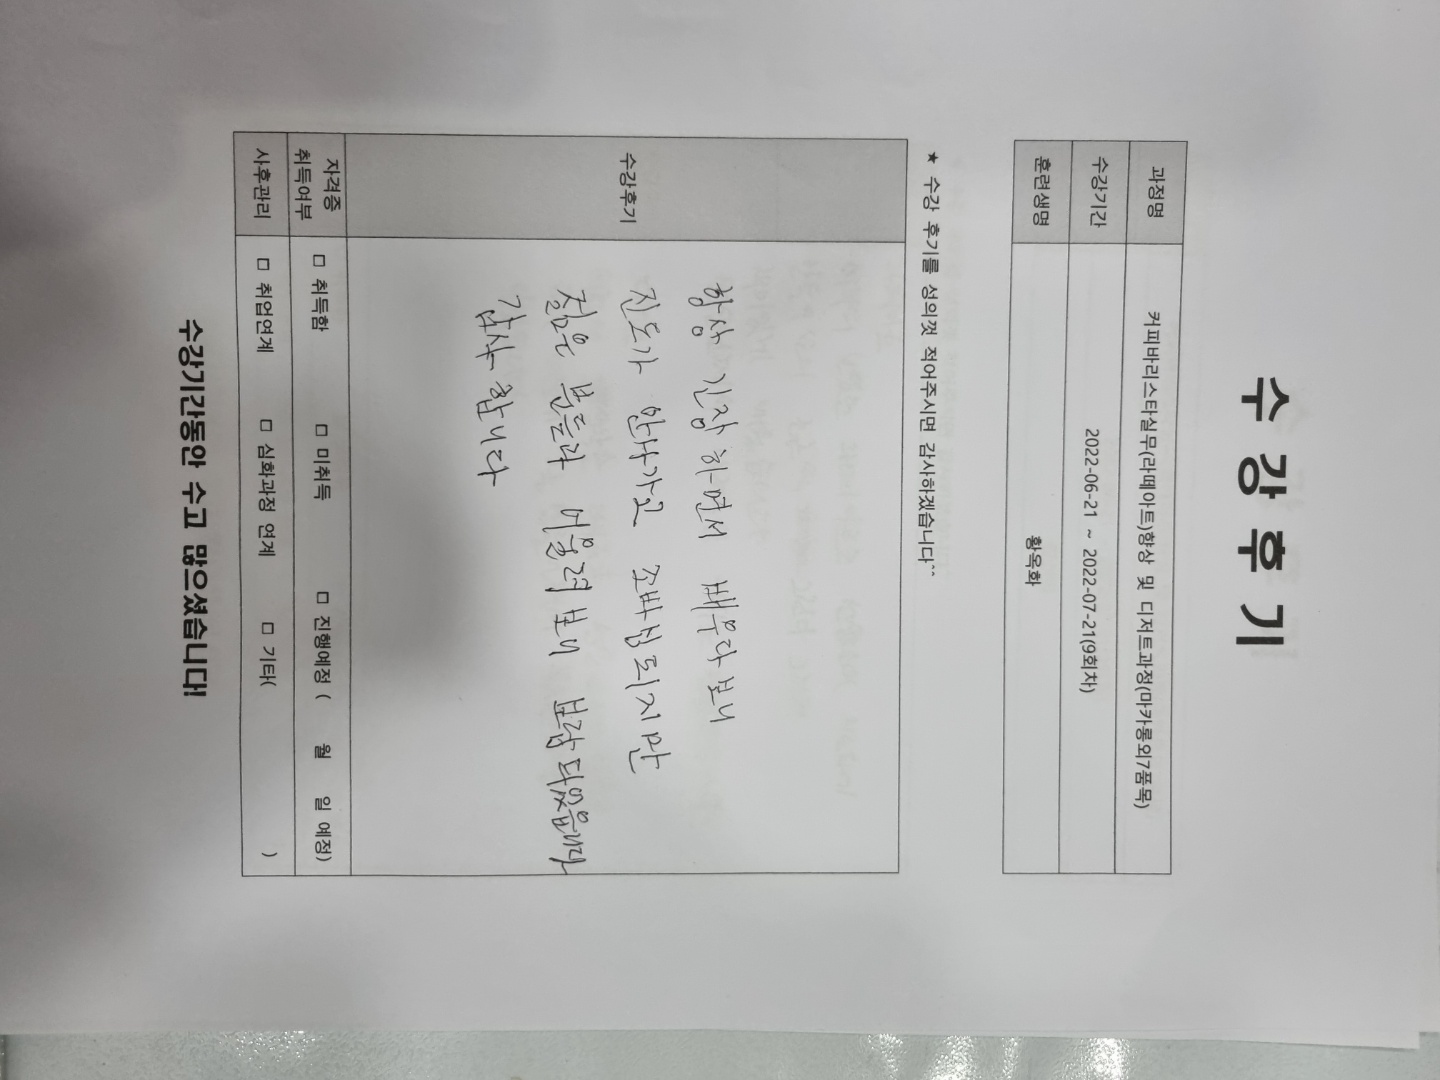 수 강 후 기
과정명 커피바리스타실무(라떼아트)향상 및 디저트과정(마카롱외7품목)
수강기간 2022-06-21 ~ 2022-07-21(9회차)
훈련생명 황옥화
★ 수강 후기를 성의껏 적어주시면 감사하겠습니다^^
수강후기
항상 긴장하면서 배우다보니
진도가 안나가고 조바심되지만
젊은 분들과 어울려보니 보람되었읍니다
감사합니다
자격증
취득여부 □ 취득함 □ 미취득 □ 진행예정 ( 월 일 예정)
사후관리 □ 취업연계 □ 심화과정 연계 □ 기타( )
수강기간동안 수고 많으셨습니다!